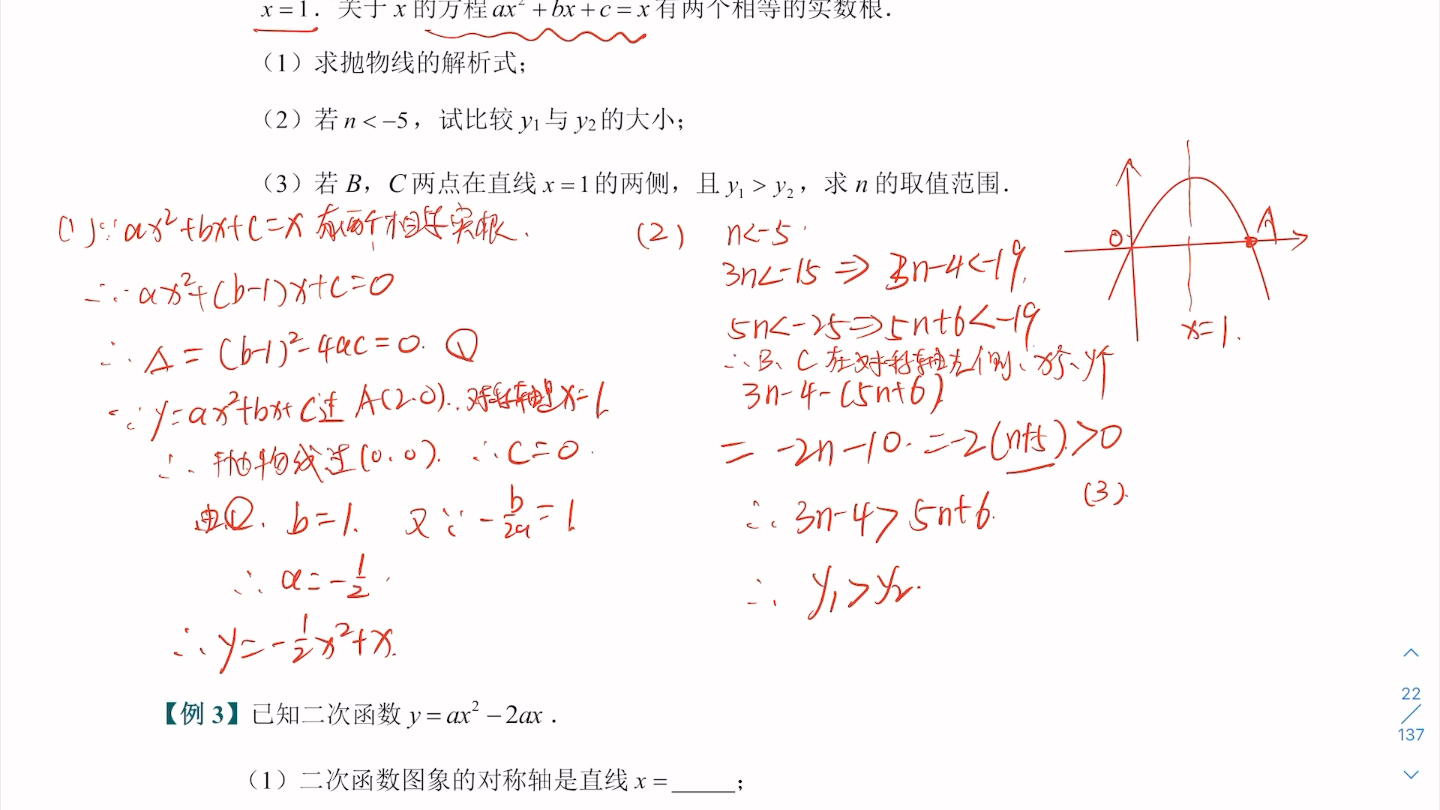 x = 1．关于 x 的方程 ax² + bx + c = x 有两个相等的实数根．
（1）求抛物线的解析式；
（2）若 n < −5，试比较 y₁ 与 y₂ 的大小；
（3）若 B，C 两点在直线 x = 1 的两侧，且 y₁ > y₂，求 n 的取值范围．
(1) ∵ ax²+bx+c=x 有两个相等实根.
∴ ax²+(b-1)x+c=0
∴ Δ = (b-1)²-4ac=0. ①
∵ y=ax²+bx+c过 A(2.0). 对称轴是x=1.
∴ 抛物线过(0.0). ∴ c=0.
由①. b=1. 又∵ -b/2a=1.
∴ a=-1/2.
∴ y=-1/2x²+x.
(2) n<-5.
3n<-15 ⇒ 3n-4<-19.
5n<-25⇒5n+6<-19
∴ B、C 在对称轴左侧、x↑、y↑
3n-4-(5n+6)
= -2n-10. =-2(n+5).>0
∴ 3n-4>5n+6.
∴ y₁>y₂.
(3).
O
A
x=1.
【例 3】已知二次函数 y = ax² − 2ax．
（1）二次函数图象的对称轴是直线 x = _____；
22
137